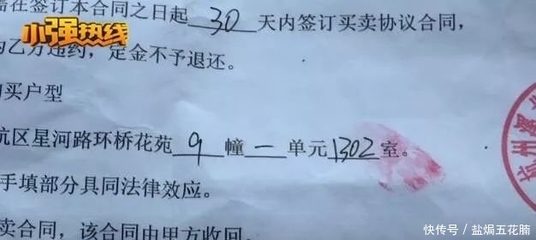 需在签订本合同之日起30天内签订买卖协议合同，
为乙方违约，定金不予退还。
小强热线
购买户型
杭区星河路环桥花苑9幢一单元1302室。
手填部分具同法律效应。
卖合同，该合同由甲方收回。
杭州
快传号／盐焗五花腩